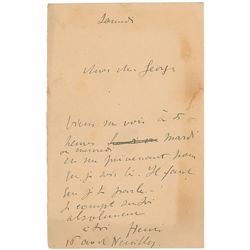 Samedi
Mon cher George
Viens me voir à 5
heures mardi
ou mercredi
en me prévenant pour
que je sois là. Il faut
que je te parle.
Je compte sur toi
absolument
à toi Henri
16 av de Neuilly